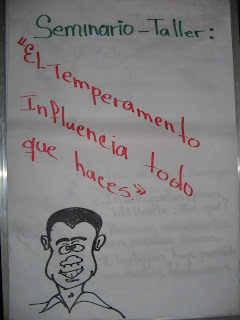 Seminario-Taller:
"El Temperamento
Influencia todo
que haces."